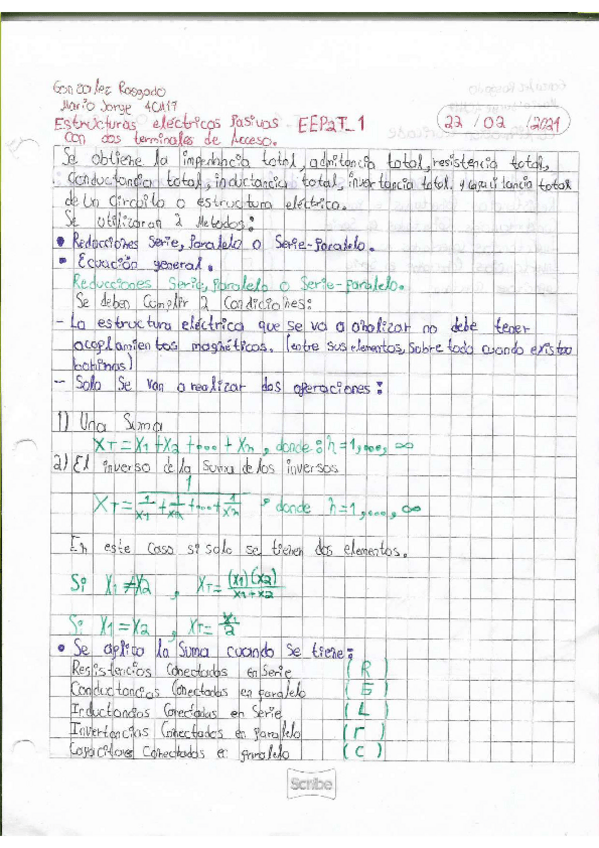 Gonzalez Rosgado
Mario Jorge 4CM17
Estructuras eléctricas Pasivas - EEP2T_1
Con dos terminales de Acceso.
22 / 02 / 2021
Se obtiene la impedancia total, admitancia total, resistencia total,
conductancia total, inductancia total, invertancia total y capacitancia total
de un circuito o estructura eléctrica.
Se utilizaran 2 Metodos:
• Reducciones Serie, Paralelo o Serie-Paralelo.
• Ecuación general.
Reducciones Serie, Paralelo o Serie-paralelo.
Se deben Cumplir 2 Condiciones:
- La estructura eléctrica que se va a analizar no debe tener
acoplamientos magnéticos. (entre sus elementos, sobre todo cuando existan
bobinas)
- Solo Se van a realizar dos operaciones:
1) Una Suma
XT = X1 + X2 + ... + Xn, donde: n=1,...,∞
2) El inverso de la Suma de los inversos
XT = 1 / (1/X1 + 1/X2 + ... + 1/Xn), donde n=1,...,∞
En este Caso si solo se tienen dos elementos.
Si X1 ≠ X2, XT = (X1)(X2) / X1+X2
Si X1 = X2, XT = X1/2
• Se aplica la Suma cuando se tiene:
Resistencias Conectadas en Serie (R)
Conductancias Conectadas en paralelo (G)
Inductancias Conectadas en Serie (L)
Invertancias Conectadas en paralelo (Γ)
Capacitores Conectados en paralelo (C)
Scribe